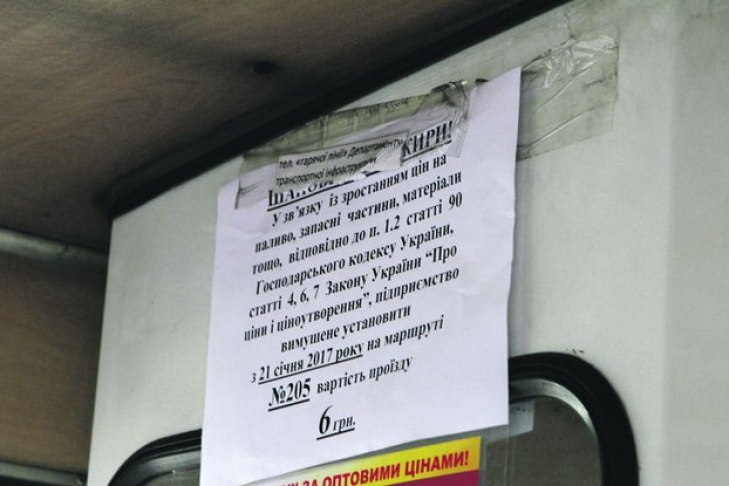 тел. «гарячої лінії» Департаменту
транспортної інфраструктури
У зв'язку із зростанням цін на
паливо, запасні частини, матеріали
тощо, відповідно до п. 1.2 статті 90
Господарського кодексу України,
статті 4, 6, 7 Закону України “Про
ціни і ціноутворення”, підприємство
вимушене установити
з 21 січня 2017 року на маршруті
№205 вартість проїзду
6 грн.
ЗА ОПТОВИМИ ЦІНАМИ!